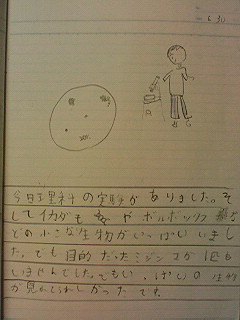 6/30
今日は理科の実験がありました。そ
してイカダモやボルボックスな
どの小さな生物がいっぱいいまし
た。でも目的だったミジンコが1匹も
いませんでした。でもいっぱいの生物
が見れてうれしかったです。